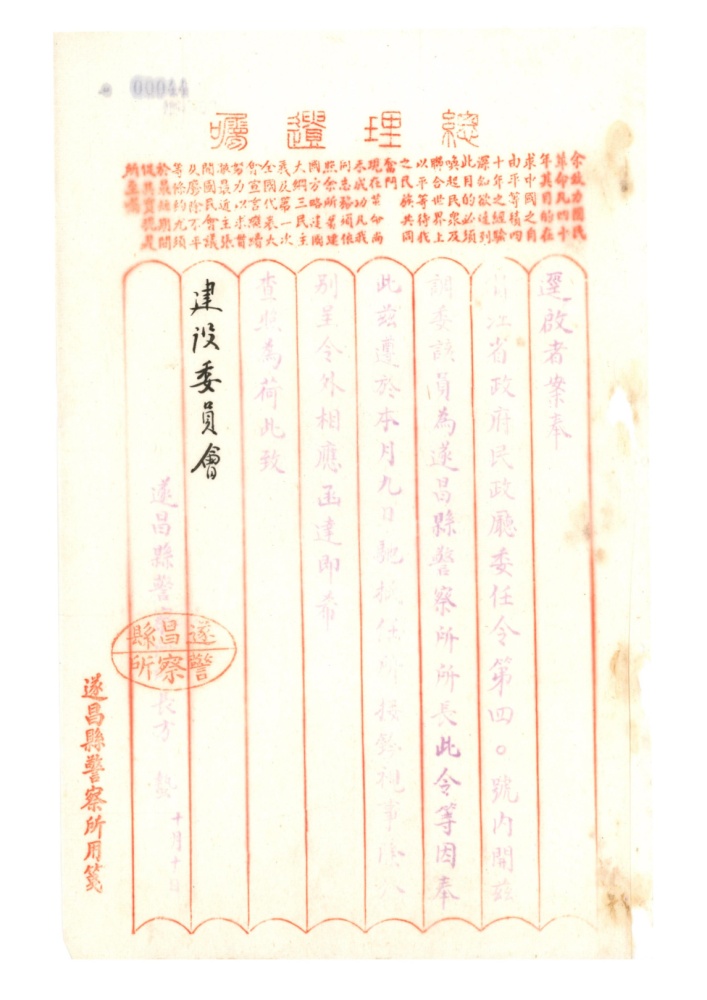 00044
總理遺囑
余致力國民
革命凡四十
年其目的在
求中國之自
由平等積四
十年之經驗
深知欲達到
此目的必須
喚起民眾及
聯合世界上
以平等待我
之民族共同
奮鬥
現在革命尚
未成功凡我
同志務須依
照余所著建
國方略建國
大綱三民主
義及第一次
全國代表大
會宣言繼續
努力以求貫
徹最近主張
開國民會議
及廢除不平
等條約尤須
於最短期間
促其實現是
所至囑
逕啟者案奉
浙江省政府民政廳委任令第四〇號內開茲
調委該員為遂昌縣警察所所長此令等因奉
此茲遵於本月九日馳抵任所接鈐視事除分
別呈令外相應函達即希
查照為荷此致
建設委員會
遂昌縣警察 長方 十月十日
遂昌縣
警察所
遂昌縣警察所用箋